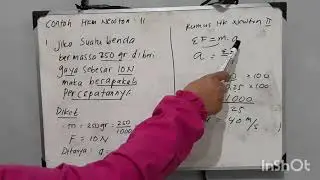 Contoh HKM Newton II
Jika Suatu benda
bermassa 250 gr diberi
gaya sebesar 10N
maka berapakah
Percepatannya
Diket
m = 250gr = 250/1000
F = 10N
Ditanya: a
Rumus HK Newton II
ΣF = m. a
a =
× 100
0.25 × 100
1000
25
= 40 m/s
InShOt